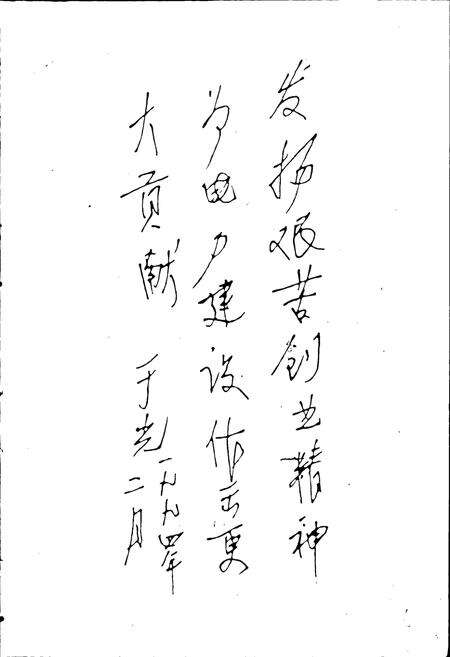 发扬艰苦创业精神
为电力建设作出更
大贡献 于光
一九九四年
二月